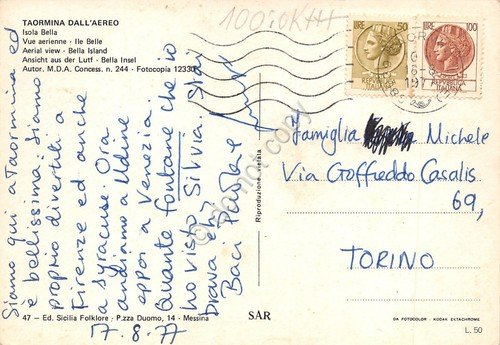 TAORMINA DALL'AEREO
Isola Bella
Vue aerienne - Ile Belle
Aerial view - Bella Island
Ansicht aus der Lutf - Bella Insel
Autor. M.D.A. Concess. n. 244 - Fotocopia 12330
100:OKHH
LIRE 50
LIRE 100
Siamo qui a Taormina ed
è bellissima. Siamo
proprio divertiti a
Firenze ed anche
a Syracuse. Ora
andiamo a Udine
eppoi a Venezia.
Quante fontane che io
ho visto, Silvia. Stai
brava eh?
Baci
Famiglia Michele
Via Goffredo Casalis
69,
TORINO
Riproduzione vietata
47 - Ed. Sicilia Folklore - P.zza Duomo, 14 - Messina
SAR
DA FOTOCOLOR - KODAK EKTACHROME
L. 50
17.8.77